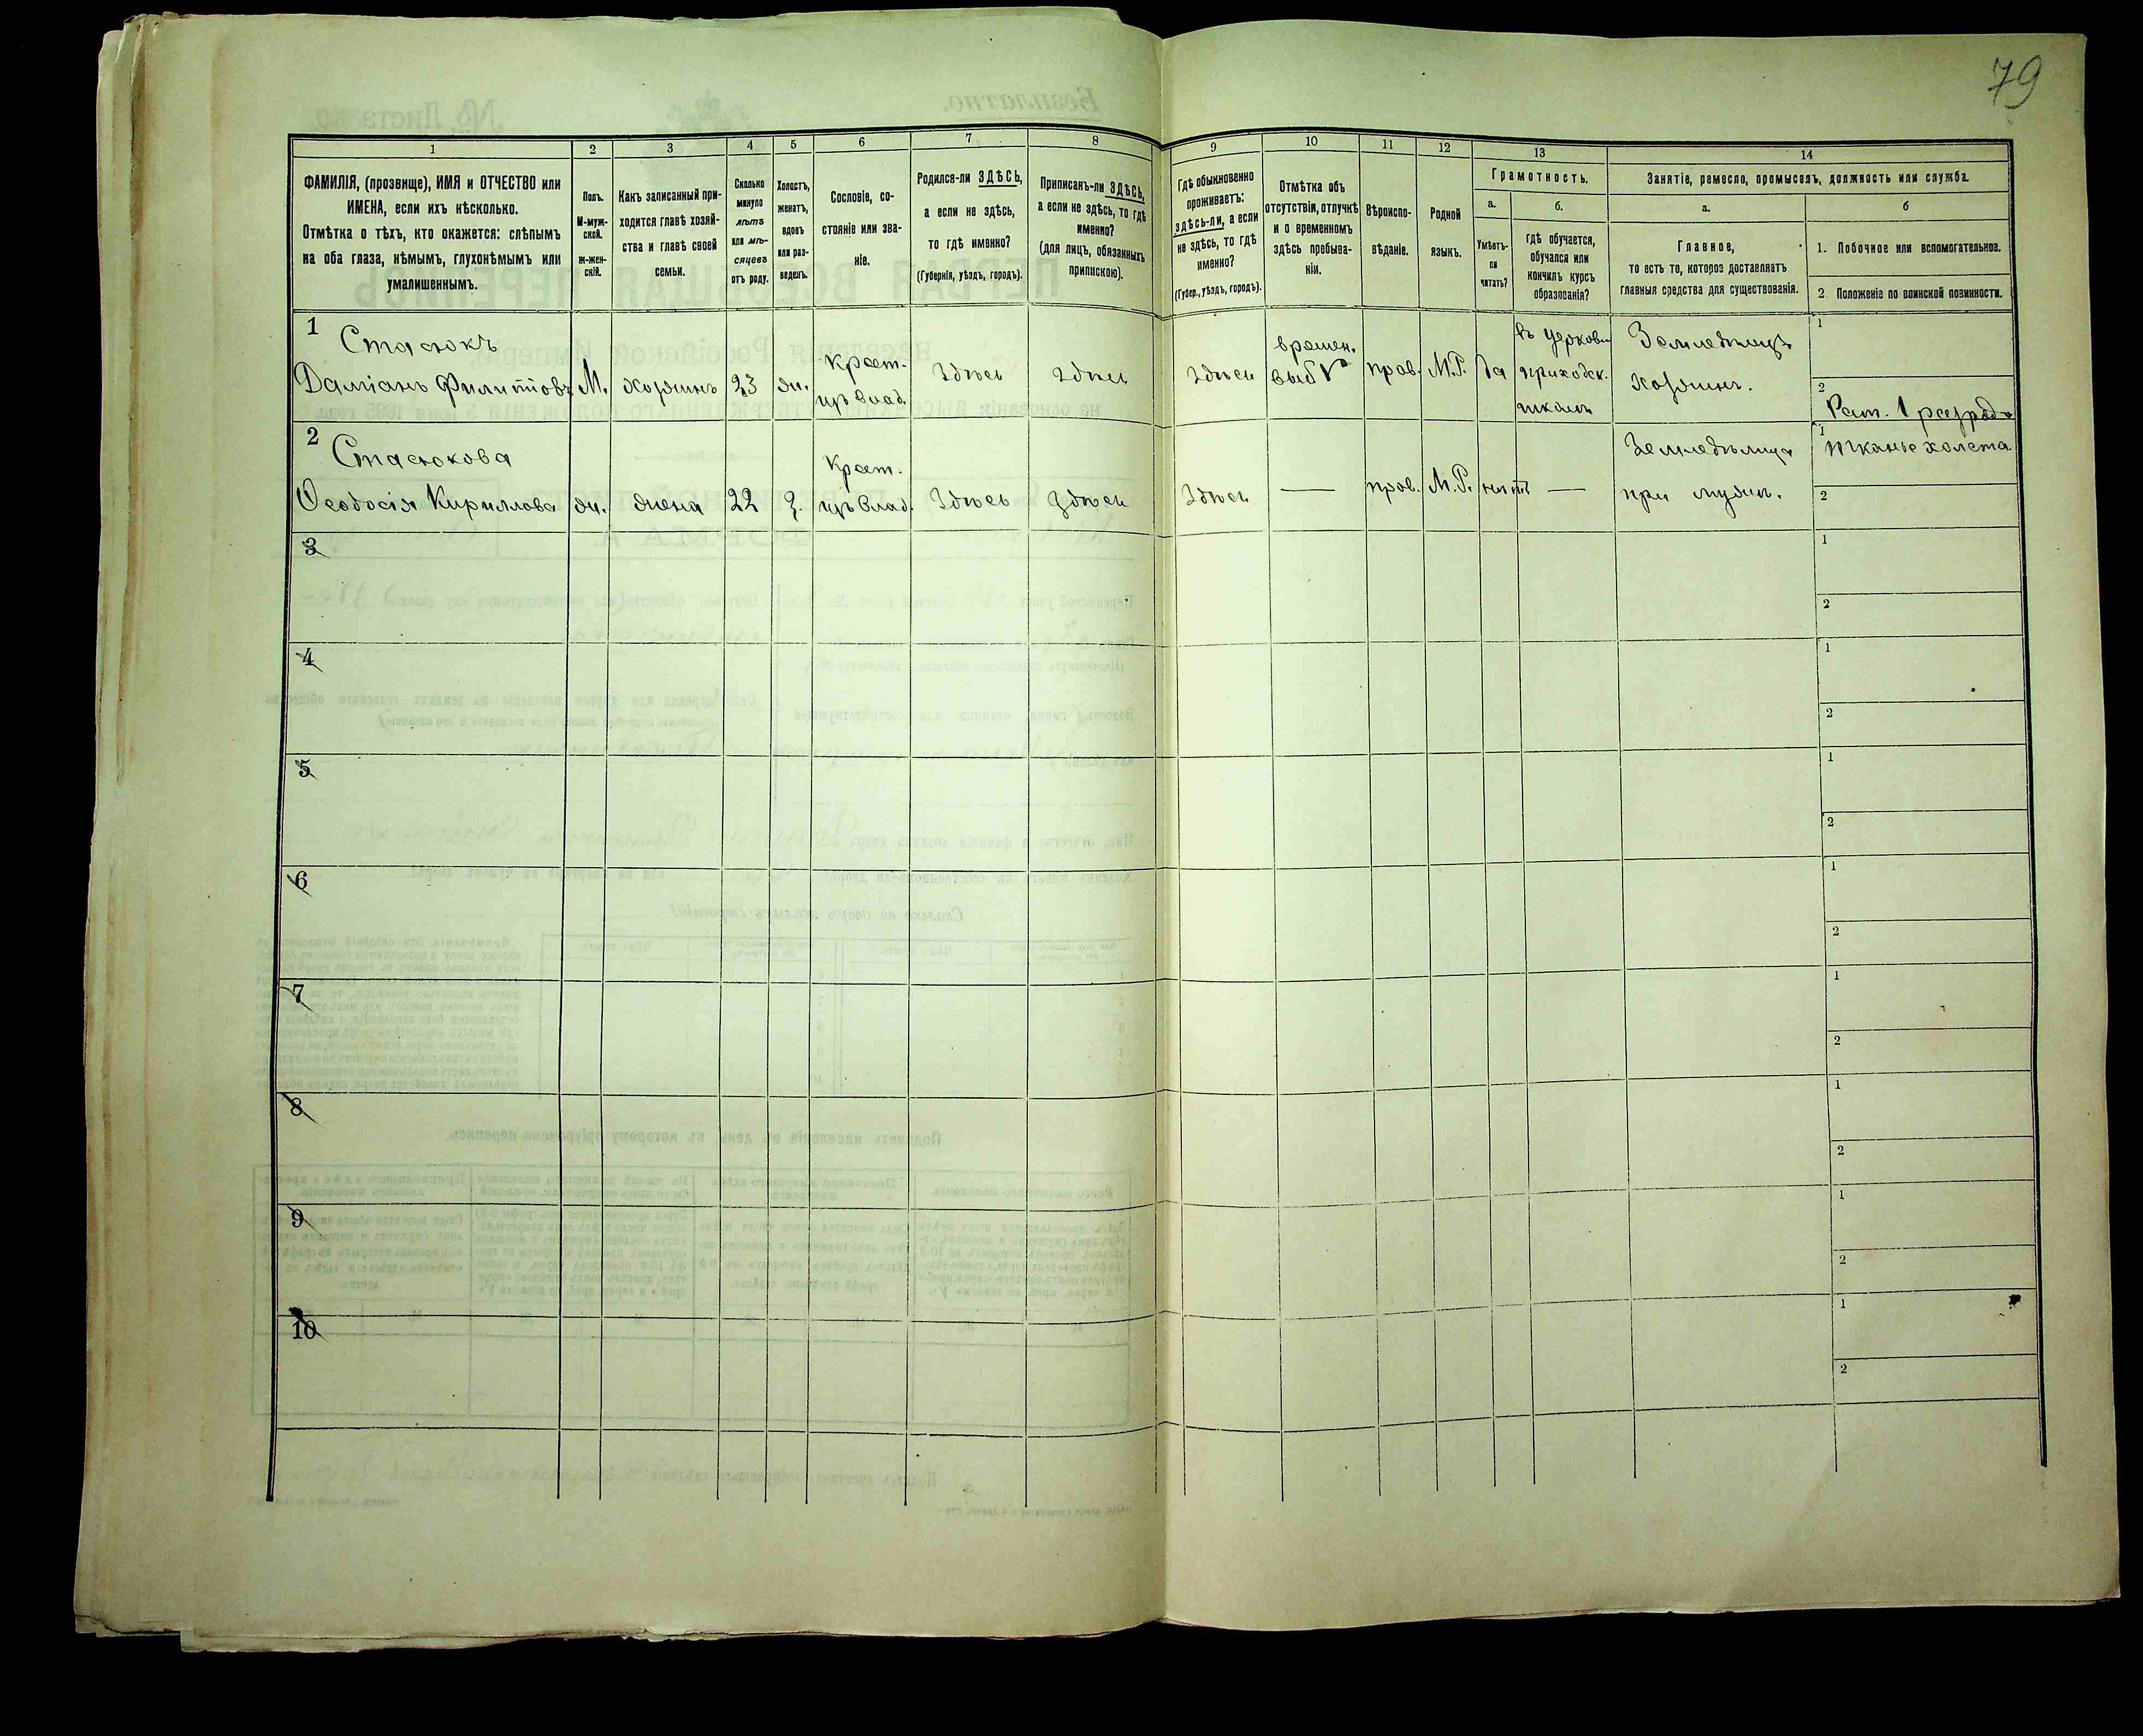 79
1
2
3
4
5
6
7
8
9
10
11
12
13
14
ФАМИЛІЯ, (прозвище), ИМЯ и ОТЧЕСТВО или
ИМЕНА, если ихъ нѣсколько.
Отмѣтка о тѣхъ, кто окажется: слѣпымъ
на оба глаза, нѣмымъ, глухонѣмымъ или
умалишеннымъ.
Полъ.
М-муж-
ской.
ж-жен-
скій.
Какъ записанный при-
ходится главѣ хозяй-
ства и главѣ своей
семьи.
Сколько
минуло
лѣтъ
или мѣ-
сяцевъ
отъ роду.
Холостъ,
женатъ,
вдовъ
или раз-
веденъ.
Сословіе, со-
стояніе или зва-
ніе.
Родился-ли ЗДѢСЬ,
а если не здѣсь,
то гдѣ именно?
(Губернія, уѣздъ, городъ).
Приписанъ-ли ЗДѢСЬ,
а если не здѣсь, то гдѣ
именно?
(для лицъ, обязанныхъ
припискою).
Гдѣ обыкновенно
проживаетъ:
здѣсь-ли, а если
не здѣсь, то гдѣ
именно?
(Губер., уѣздъ, городъ).
Отмѣтка объ
отсутствіи, отлучкѣ
и о временномъ
здѣсь пребыва-
ніи.
Вѣроиспо-
вѣданіе.
Родной
языкъ.
Грамотность.
а.
Умѣетъ-
ли
читать?
б.
гдѣ обучается,
обучался или
кончилъ курсъ
образованія?
Занятіе, ремесло, промыселъ, должность или служба.
а.
Главное,
то есть то, которое доставляетъ
главныя средства для существованія.
б
1. Побочное или вспомогательное.
2. Положеніе по воинской повинности.
1
Стасюкъ
Даміанъ Филиповъ
М.
хозяинъ
23
ж.
крест.
изъ влад.
здѣсь
здѣсь
здѣсь
времен.
выб V
прав.
М.Р.
да
въ церковн
приходск.
школѣ
Земледѣлецъ
хозяинъ.
1
2
Рат. 1 разряда
2
Стасюкова
Ѳеодосія Кириллова
ж.
жена
22
З.
крест.
изъ влад.
здѣсь
здѣсь
здѣсь
—
прав.
М.Р.
нѣтъ
—
Земледѣлица
при мужѣ.
1
тканье холста
2
3
1
2
4
1
2
5
1
2
6
1
2
7
1
2
8
1
2
9
1
2
10
1
2